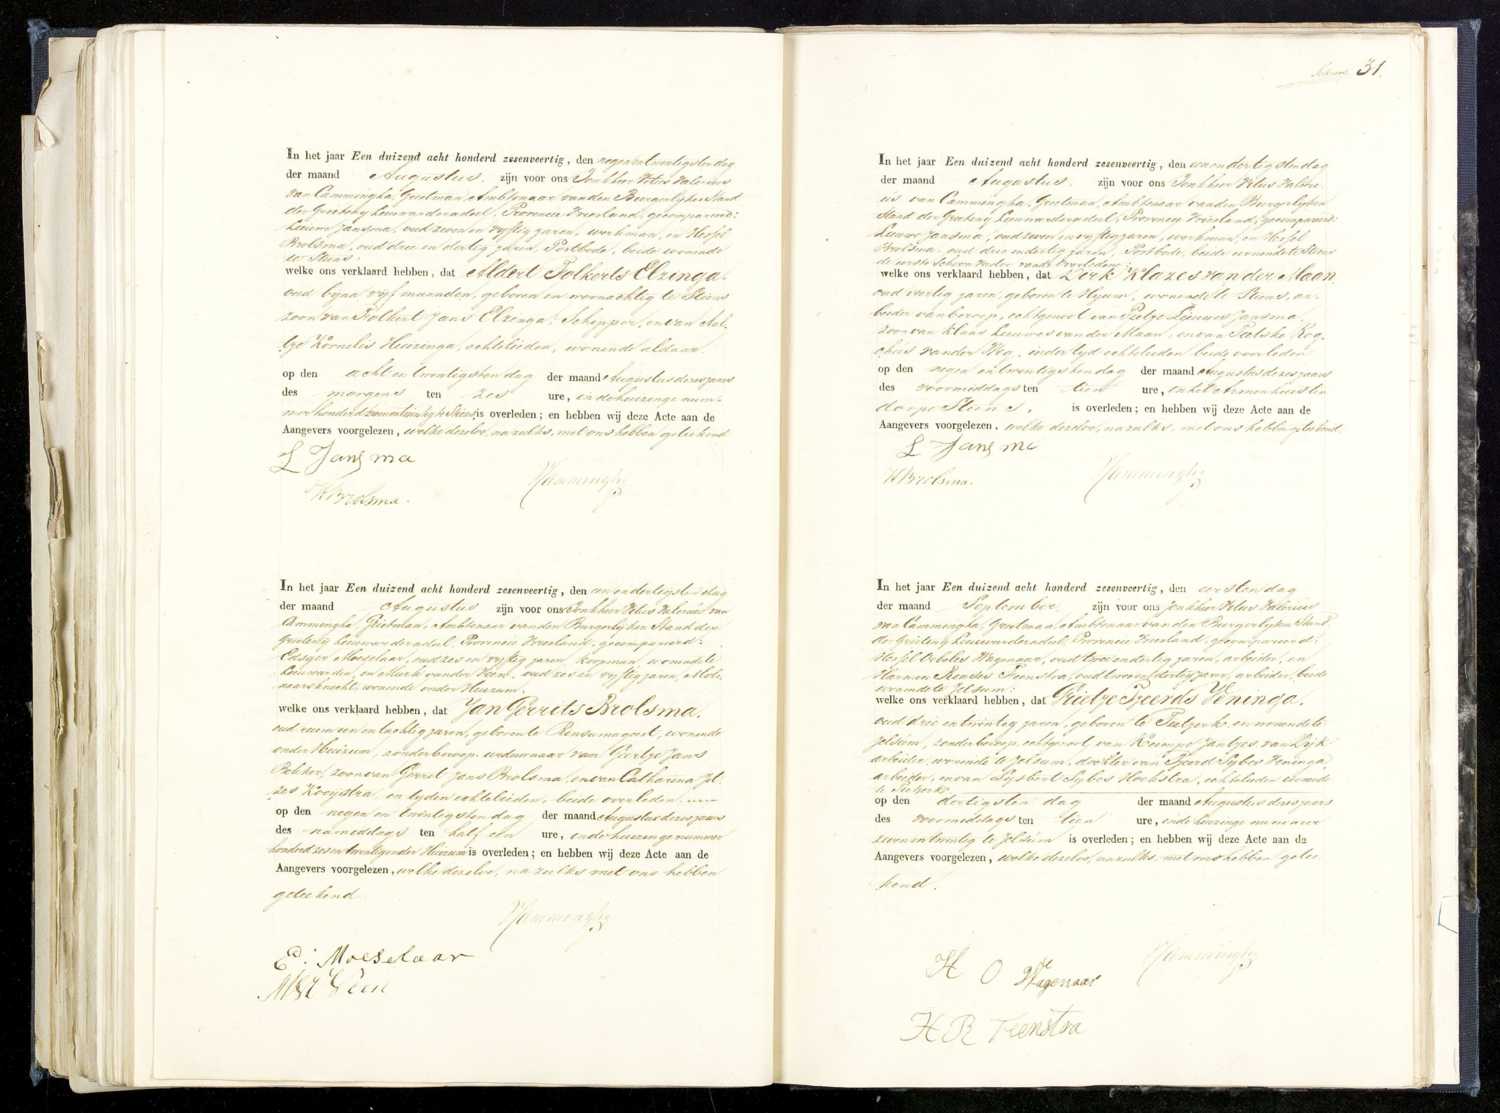 In het jaar Een duizend acht honderd zesenveertig, den negenentwintigsten dag
der maand Augustus. zijn voor ons Jonkheer Vitus Valerius
van Cammingha, Grietman, Ambtenaar van den Burgerlyken Stand
der Grieteny Leeuwarderadeel, Provincie Vriesland, gecompareerd:
Leeuwe Jansma, oud zeven en vyftig jaren, werkman, en Hessel
Brolsma, oud drie en dertig jaren, Postbode, beide wonende
te Stiens:
welke ons verklaard hebben, dat Aldert Folkerts Elzinga.
oud byna vyf maanden, geboren en woonachtig te Stiens
zoon van Folkert Jans Elzinga, Schipper, en van
Kornelis Huizinga, echtelieden, wonende aldaar.
op den acht en twintigsten dag der maand Augustus dezes jaars
des morgens ten zes ure, in de huizinge num-
mer honderd te Stiens is overleden; en hebben wij deze Acte aan de
Aangevers voorgelezen, welke dezelve, nazulks, met ons hebben geteekend
L Jansma
H Brolsma.
VCammingha
In het jaar Een duizend acht honderd zesenveertig, den een en dertigsten dag
der maand Augustus zijn voor ons Jonkheer Vitus Valerius van
Cammingha, Grietman, Ambtenaar van den Burgerlyken Stand der
Grieteny Leeuwarderadeel, Provincie Vriesland, gecompareerd:
Edsger Moeselaar, oud zes en vyftig jaren, koopman, wonende te
Leeuwarden, en van der Veen, oud zes en vyftig jaren, Mole-
naarsknecht, wonende onder Huizum.
welke ons verklaard hebben, dat Jan Gerrits Brolsma.
oud een en tachtig jaren, geboren te Rinsumageest, wonende
onder Huizum, zonder beroep, weduwnaar van Giertje Jans
Bakker, zoon van Gerrit Jans Brolsma, en van Catharina Jel
zes Kooystra, in tyden echtelieden, beide overleden.
op den negen en twintigsten dag der maand Augustus dezes jaars
des namiddags ten half een ure, in de huizinge nummer
honderd zes en twintig onder Huizum is overleden; en hebben wij deze Acte aan de
Aangevers voorgelezen, welke dezelve, nazulks met ons hebben
geteekend.
VCammingha
E: Moeselaar
M V D Veen
31.
In het jaar Een duizend acht honderd zesenveertig, den een en dertigsten dag
der maand Augustus. zijn voor ons Jonkheer Vitus Valeri-
us van Cammingha, Grietman, Ambtenaar van den Burgerlyken
Stand der Grieteny Leeuwarderadeel, Provincie Vriesland, gecompareerd:
Leeuwe Jansma, oud zeven en vyftig jaren, werkman, en Hessel
Brolsma, oud drie en dertig jaren, Postbode, beide wonende te Stiens
de eerste Schoonvader van den Overledene:
welke ons verklaard hebben, dat Dirk Klazes van der Maan.
oud veertig jaren, geboren te Hijum, wonende te Stiens, ar-
beider van beroep, echtgenoot van Pietje Leeuwes Jansma,
zoon van Klaas Leeuwes van der Maan, en van Patiske Rog
chus van der Weg, inder tyd echtelieden beide overleden
op den negen en twintigsten dag der maand Augustus dezes jaars
des voormiddags ten tien ure, in het Armenhuis ten
dorpe Stiens, is overleden; en hebben wij deze Acte aan de
Aangevers voorgelezen, welke dezelve, nazulks, met ons hebben geteekend
L Jansma
H Brolsma.
VCammingha
In het jaar Een duizend acht honderd zesenveertig, den eersten dag
der maand September zijn voor ons Jonkheer Vitus Valerius
van Cammingha, Grietman, Ambtenaar van den Burgerlyken Stand
der Grieteny Leeuwarderadeel, Provincie Vriesland, gecompareerd:
Hessel Obeles Wagenaar, oud twee en dertig jaren, arbeider, en
Harmen Rendes Feenstra, oud twee en dertig jaren, arbeider, beide
wonende te Jelsum:
welke ons verklaard hebben, dat Rietje Tjeerds Veninga.
oud drie en twintig jaren, geboren te Tietjerk, en wonende te
Jelsum, zonder beroep, echtgenoot van Keimpe Jantjes van Dijk
arbeider, wonende te Jelsum, dochter van Tjeerd Sybes Veninga,
arbeider, en van Sijbert Sybes Hoekstra, echtelieden wonende
te Tietjerk
op den dertigsten dag der maand Augustus dezes jaars
des voormiddags ten tien ure, in de huizinge nummer
zeven en twintig te Jelsum is overleden; en hebben wij deze Acte aan de
Aangevers voorgelezen, welke dezelve, nazulks, met ons hebben getee
kend.
VCammingha
H O Wagenaar
H R Feenstra